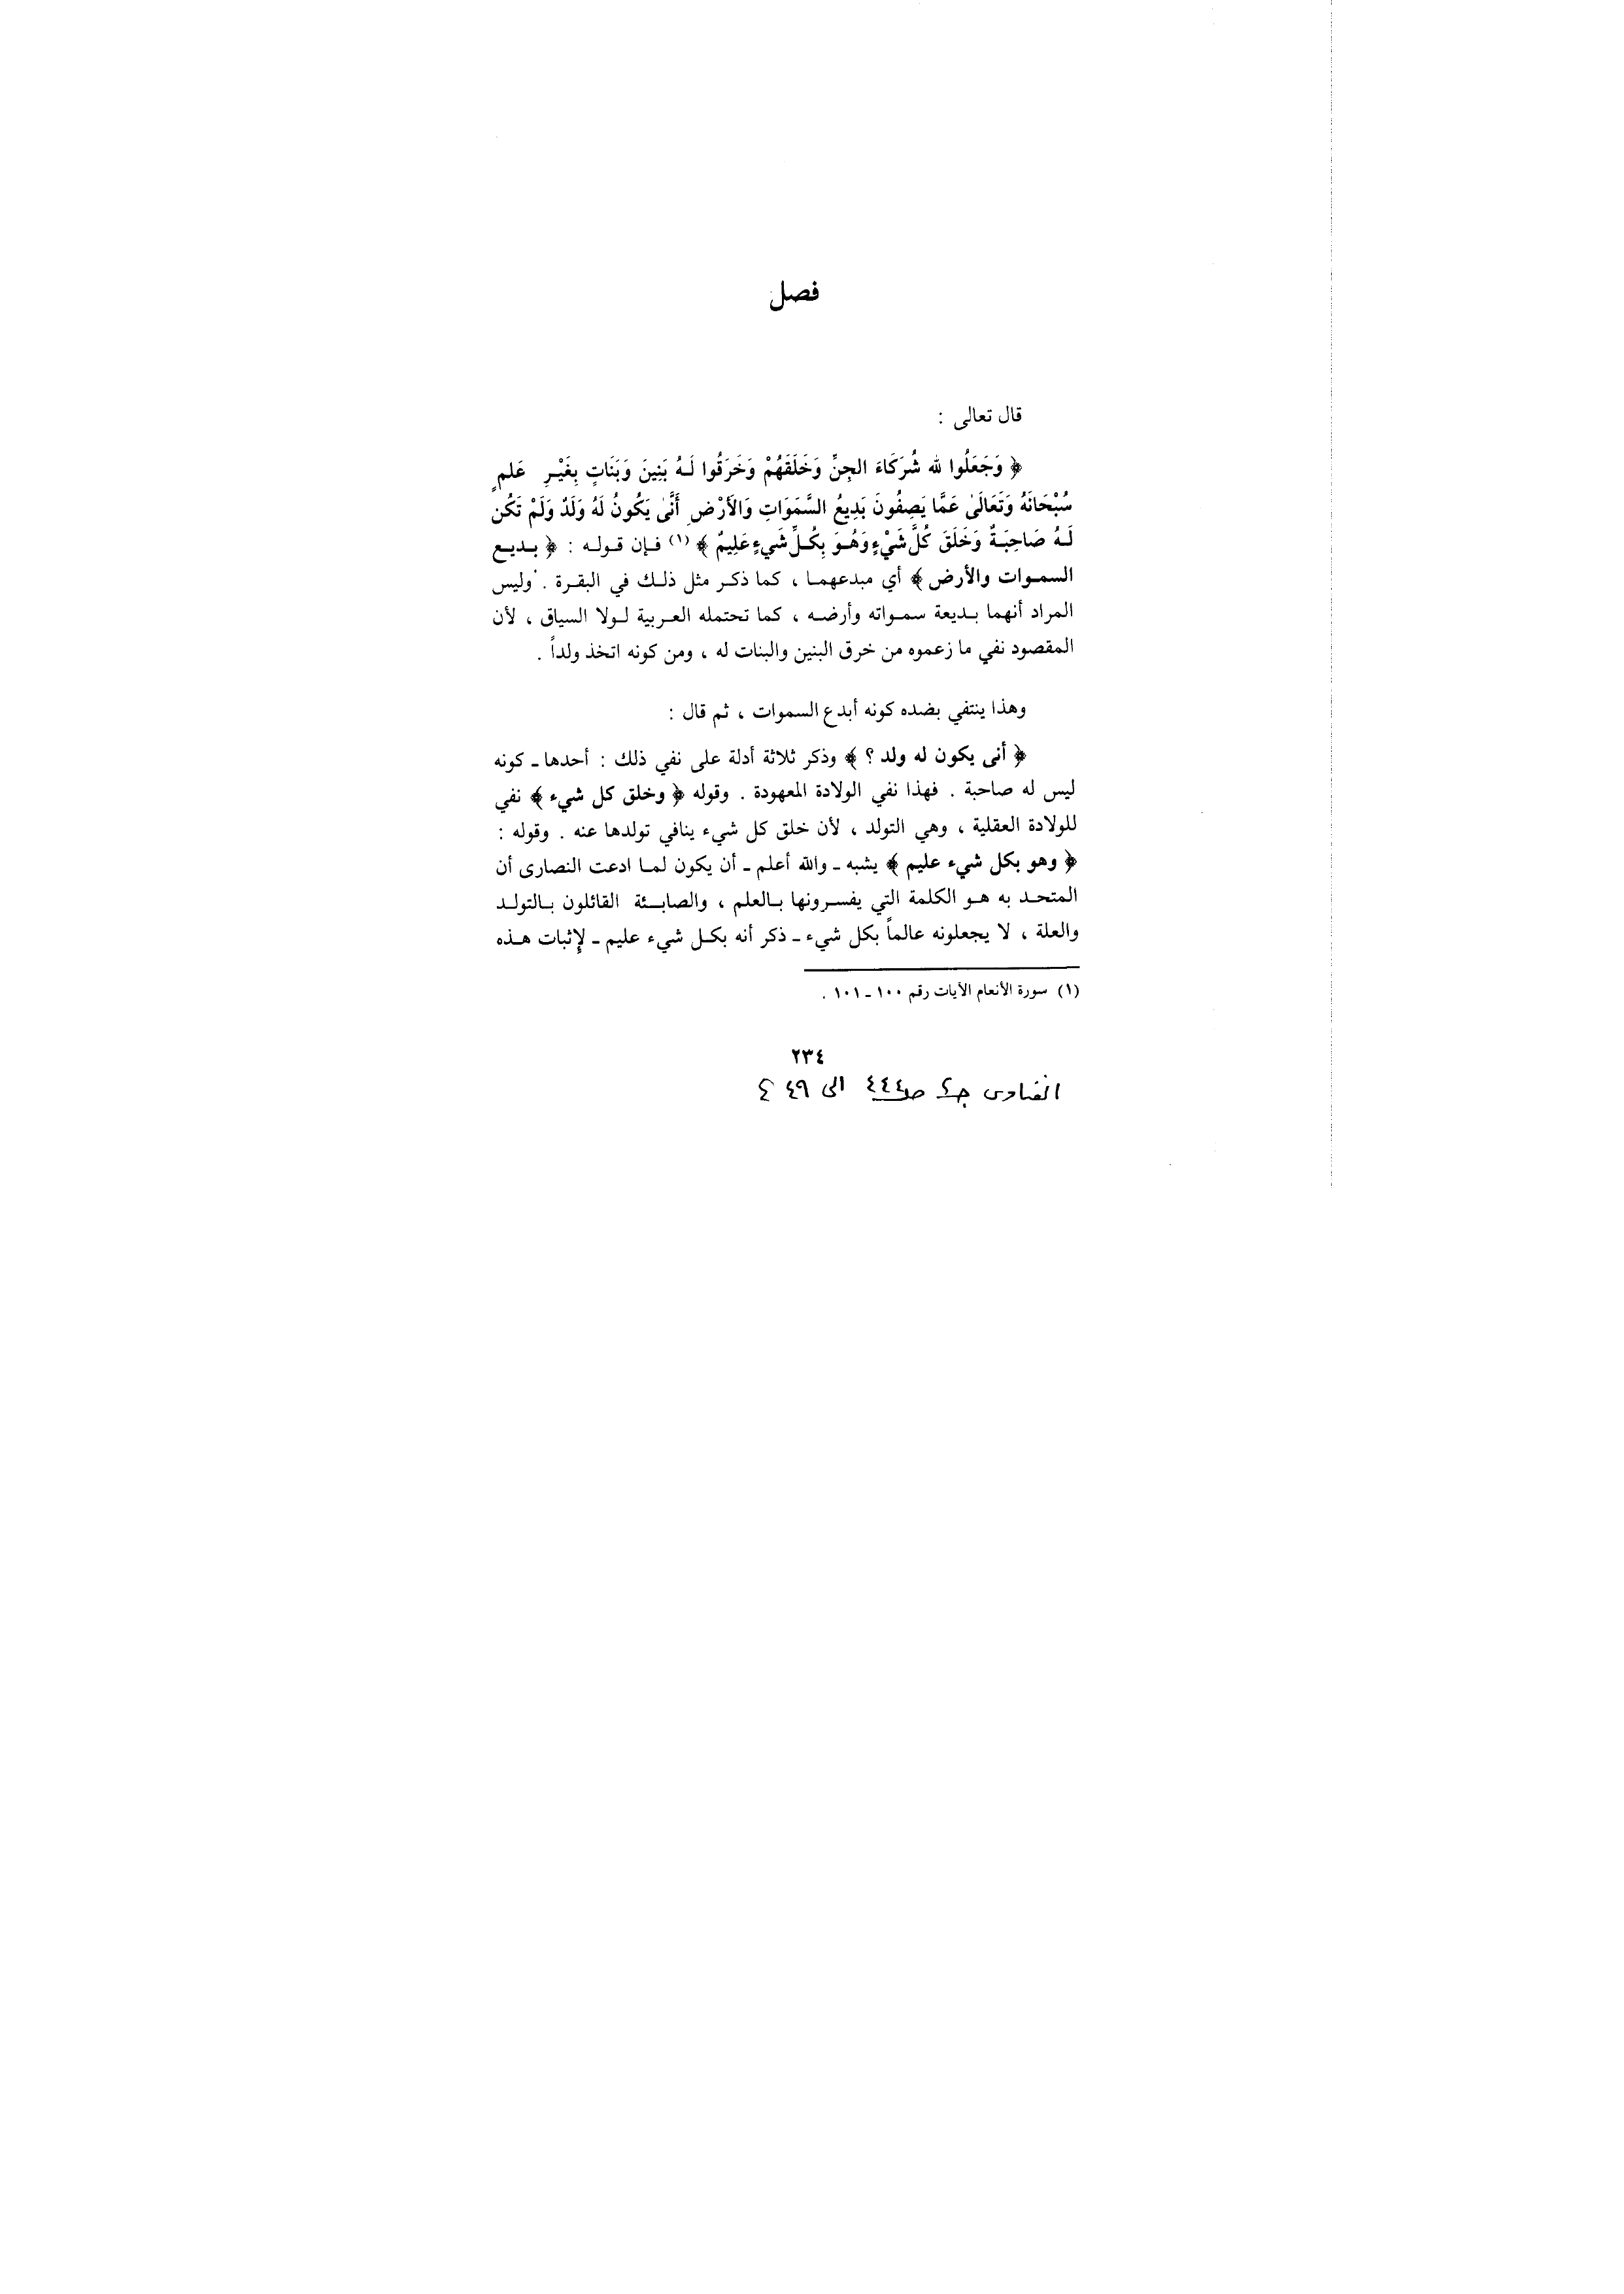 فصل
قال تعالى :
﴿ وَجَعَلُوا لله شُرَكَاءَ الجِنِّ وَخَلَقَهُمْ وَخَرَقُوا لَهُ بَنِينَ وَبَنَاتٍ بِغَيْرِ عَلمٍ
سُبْحَانَهُ وَتَعَالَىٰ عَمَّا يَصِفُونَ بَدِيعُ السَّمَوَاتِ وَالأَرْضِ أَنَّىٰ يَكُونُ لَهُ وَلَدٌ وَلَمْ تَكُن
لَهُ صَاحِبَةٌ وَخَلَقَ كُلَّ شَيْءٍ وَهُوَ بِكُلِّ شَيءٍ عَلِيمٌ ﴾ (١) فإن قوله : ﴿ بديع
السموات والأرض ﴾ أي مبدعهما ، كما ذكر مثل ذلك في البقرة . وليس
المراد أنهما بديعة سمواته وأرضه ، كما تحتمله العربية لولا السياق ، لأن
المقصود نفي ما زعموه من خرق البنين والبنات له ، ومن كونه اتخذ ولداً .
وهذا ينتفي بضده كونه أبدع السموات ، ثم قال :
﴿ أنى يكون له ولد ؟ ﴾ وذكر ثلاثة أدلة على نفي ذلك : أحدها ـ كونه
ليس له صاحبة . فهذا نفي الولادة المعهودة . وقوله ﴿ وخلق كل شيء ﴾ نفي
للولادة العقلية ، وهي التولد ، لأن خلق كل شيء ينافي تولدها عنه . وقوله :
﴿ وهو بكل شيء عليم ﴾ يشبه ـ والله أعلم ـ أن يكون لما ادعت النصارى أن
المتحد به هو الكلمة التي يفسرونها بالعلم ، والصابئة القائلون بالتولد
والعلة ، لا يجعلونه عالماً بكل شيء ـ ذكر أنه بكل شيء عليم ـ لإثبات هذه
(١) سورة الأنعام الآيات رقم ١٠٠ ـ ١٠١ .
٢٣٤
الفتاوى ج٢ ص٤٤٤ الى ٤٤٩